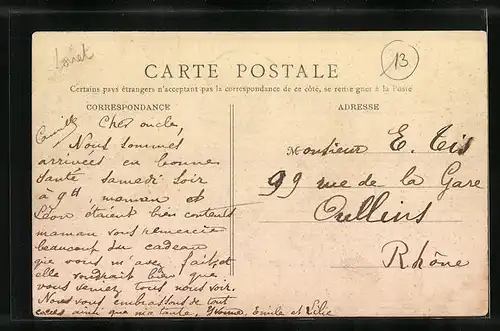 Loiret
13
CARTE POSTALE
Certains pays étrangers n'acceptant pas la correspondance de ce côté, se renseigner à la Poste
CORRESPONDANCE
Cher oncle,
Nous sommes
arrivées en bonne
santé samedi soir
à 9h, maman et
Léon étaient bien contents
maman vous remercie
beaucoup du cadeau
que vous m'avez fait, et
elle voudrait bien que
vous veniez tous nous voir.
Nous vous embrassons de tout
cœur ainsi que ma tante. Yvonne, Emile et Lilie
ADRESSE
Monsieur E. Tis
99 rue de la Gare
Oullins
Rhône